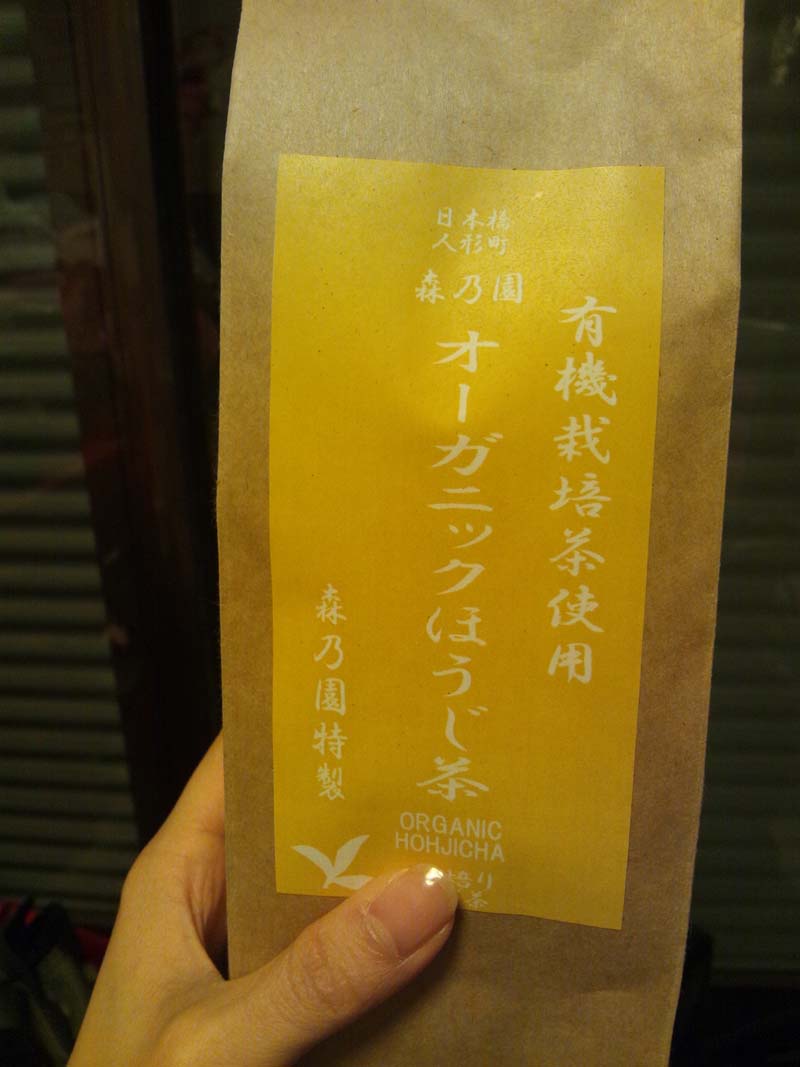 日本橋
人形町
森乃園
有機栽培茶使用
オーガニックほうじ茶
森乃園特製
ORGANIC
HOHJICHA
焙り
茶